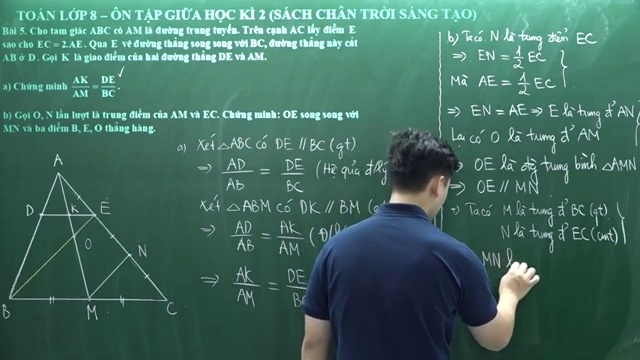 TOÁN LỚP 8 – ÔN TẬP GIỮA HỌC KÌ 2 (SÁCH CHÂN TRỜI SÁNG TẠO)
Bài 5. Cho tam giác ABC có AM là đường trung tuyến. Trên cạnh AC lấy điểm E
sao cho EC = 2.AE. Qua E vẽ đường thẳng song song với BC, đường thẳng này cắt
AB ở D. Gọi K là giao điểm của hai đường thẳng DE và AM.
a) Chứng minh AK/AM = DE/BC.
b) Gọi O, N lần lượt là trung điểm của AM và EC. Chứng minh: OE song song với
MN và ba điểm B, E, O thẳng hàng.
a) Xét △ABC có DE // BC (gt)
⇒ AD/AB = DE/BC (Hệ quả
Xét △ABM có DK // BM
⇒ AD/AB = AK/AM
⇒ AK/AM = DE
b) Ta có N là trung điểm EC
⇒ EN = 1/2 EC
Mà AE = 1/2 EC
⇒ EN = AE ⇒ E là trung đ' AN
Lại có O là trung đ' AM
⇒ OE là đg trung bình △AMN
⇒ OE // MN
+ Ta có M là trung đ' BC (gt)
N là trung đ' EC (cmt)
MN l
A
D
K
E
O
N
B
M
C